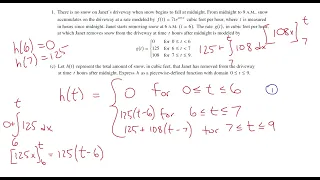 1. There is no snow on Janet's driveway when snow begins to fall at midnight. From midnight to 9 A.M., snow
accumulates on the driveway at a rate modeled by f(t) = 7te^cos t cubic feet per hour, where t is measured
in hours since midnight. Janet starts removing snow at 6 A.M. (t = 6). The rate g(t), in cubic feet per hour,
at which Janet removes snow from the driveway at time t hours after midnight is modeled by
g(t) = { 0 for 0 ≤ t < 6
125 for 6 ≤ t < 7
108 for 7 ≤ t ≤ 9.
h(6) = 0
h(7) = 125
125 + ∫_7^t 108 dx
[108x]_7^t
(c) Let h(t) represent the total amount of snow, in cubic feet, that Janet has removed from the driveway
at time t hours after midnight. Express h as a piecewise-defined function with domain 0 ≤ t ≤ 9.
h(t) = { 0 for 0 ≤ t ≤ 6 ①
125(t-6) for 6 ≤ t ≤ 7
125 + 108(t-7) for 7 ≤ t ≤ 9
0 + ∫_6^t 125 dx
[125x]_6^t = 125(t-6)